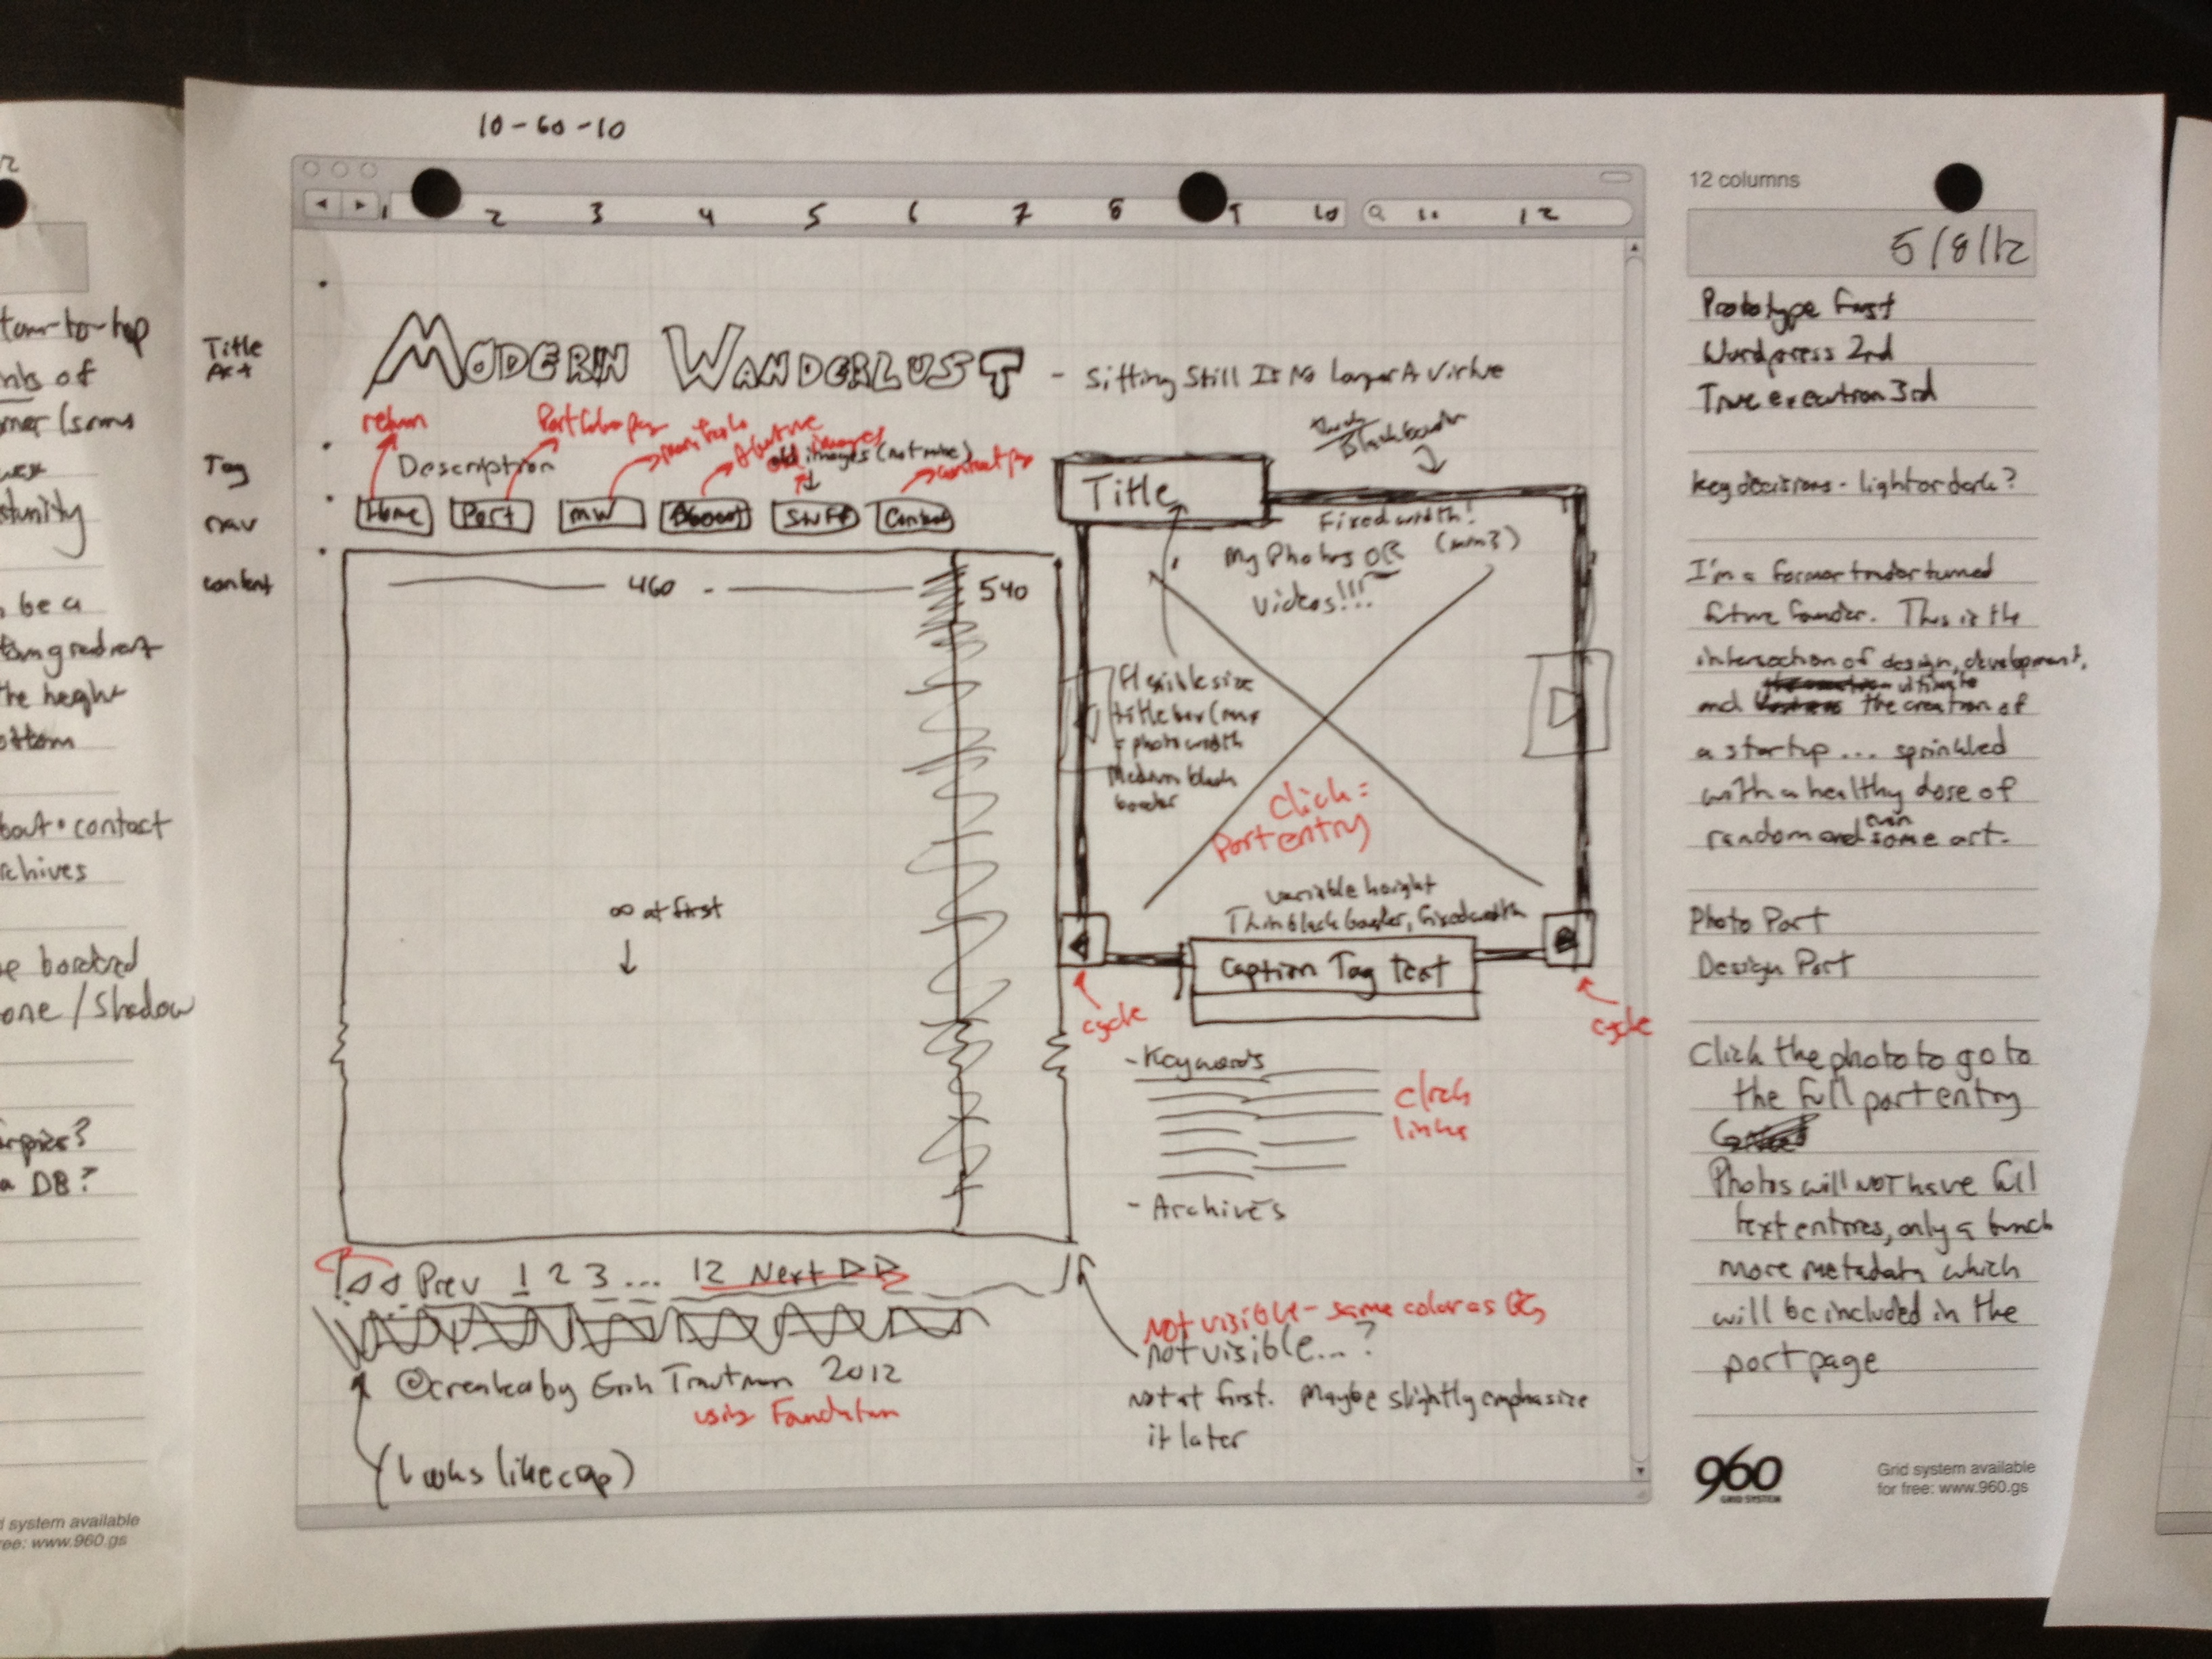 10-60-10
12 columns
1 2 3 4 5 6 7 8 9 10 11 12
5/8/12
Title
Art
MODERN WANDERLUST - Sitting Still Is No Longer A Virtue
return
Portfolio pg
old images (not mine)
contact pg
Tag
Description
nav
Home
Port
MW
About
Stuff
Contact
content
460
540
∞ at first
Title
Thick
Black border
Fixed width!
My Photos OR
Videos!!!
Flexible size
title bar (max
= photo width
Medium black
border
Click =
Port entry
variable height
Thin black border, fixed width
Caption Tag Text
cycle
cycle
- Keywords
click
links
- Archives
Prev 1 2 3 ... 12 Next
©created by Erik Trautman 2012
using Foundation
(looks like cap)
Not visible - same color as BG
not visible...?
Not at first. Maybe slightly emphasize
it later
Prototype First
Wordpress 2nd
True execution 3rd
key decisions - light or dark?
I'm a former trader turned
future founder. This is the
intersection of design, development,
ultimate
and the creation of
a startup... sprinkled
with a healthy dose of
even
random and some art.
Photo Port
Design Port
Click the photo to go to
the full port entry
Photos will NOT have full
text entries, only a bunch
more metadata which
will be included in the
port page
960
GRID SYSTEM
Grid system available
for free: www.960.gs
tom-to-top
of
be a
gradient
the height
ottom
bout • contact
rchives
bordered
one / Shadow
a DB?
d system available
ree: www.960.gs